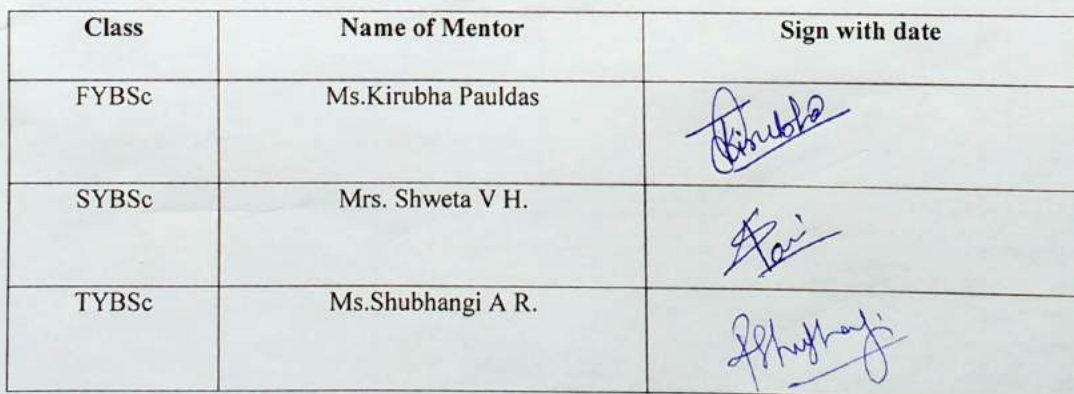 Class Name of Mentor Sign with date
FYBSc Ms.Kirubha Pauldas Kirubha
SYBSc Mrs. Shweta V H.
TYBSc Ms.Shubhangi A R. Shubhangi